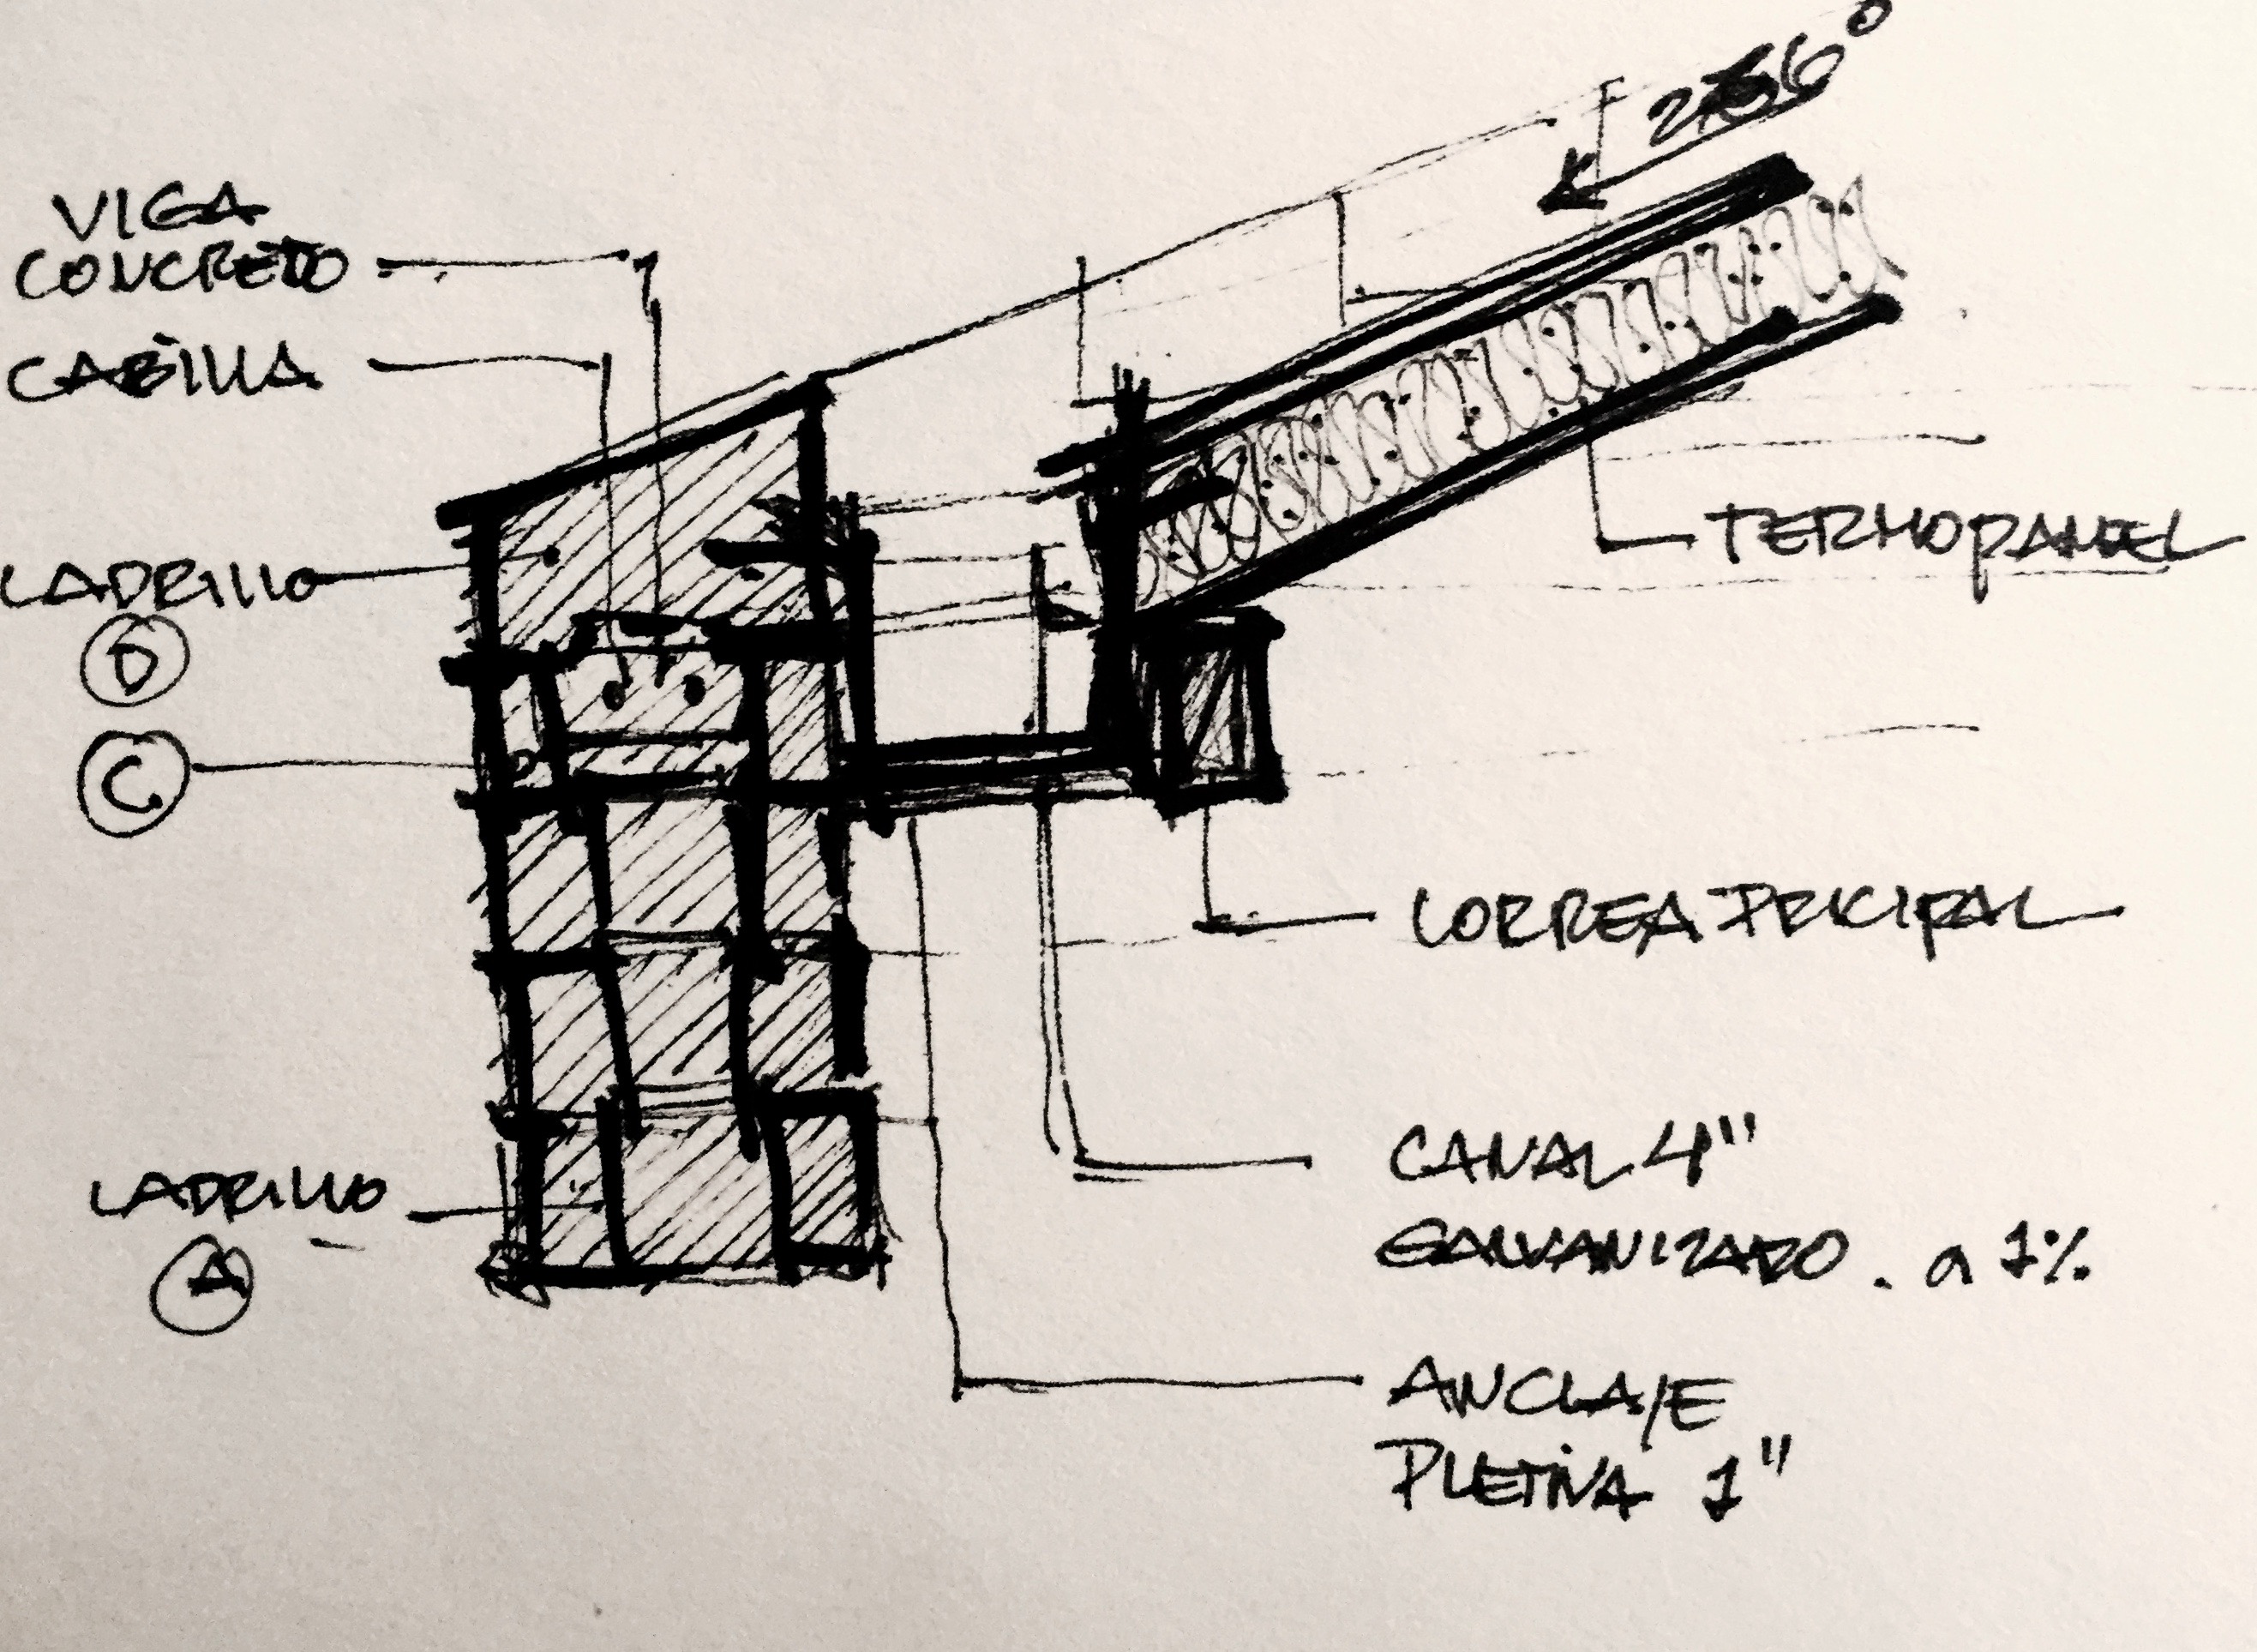 VIGA
CONCRETO
CABILLA
LADRILLO
D
C
LADRILLO
A
TERMOPANEL
CORREA PRICIPAL
CANAL 4"
GALVANIZADO. a 1%
ANCLAJE
PLETINA 1"